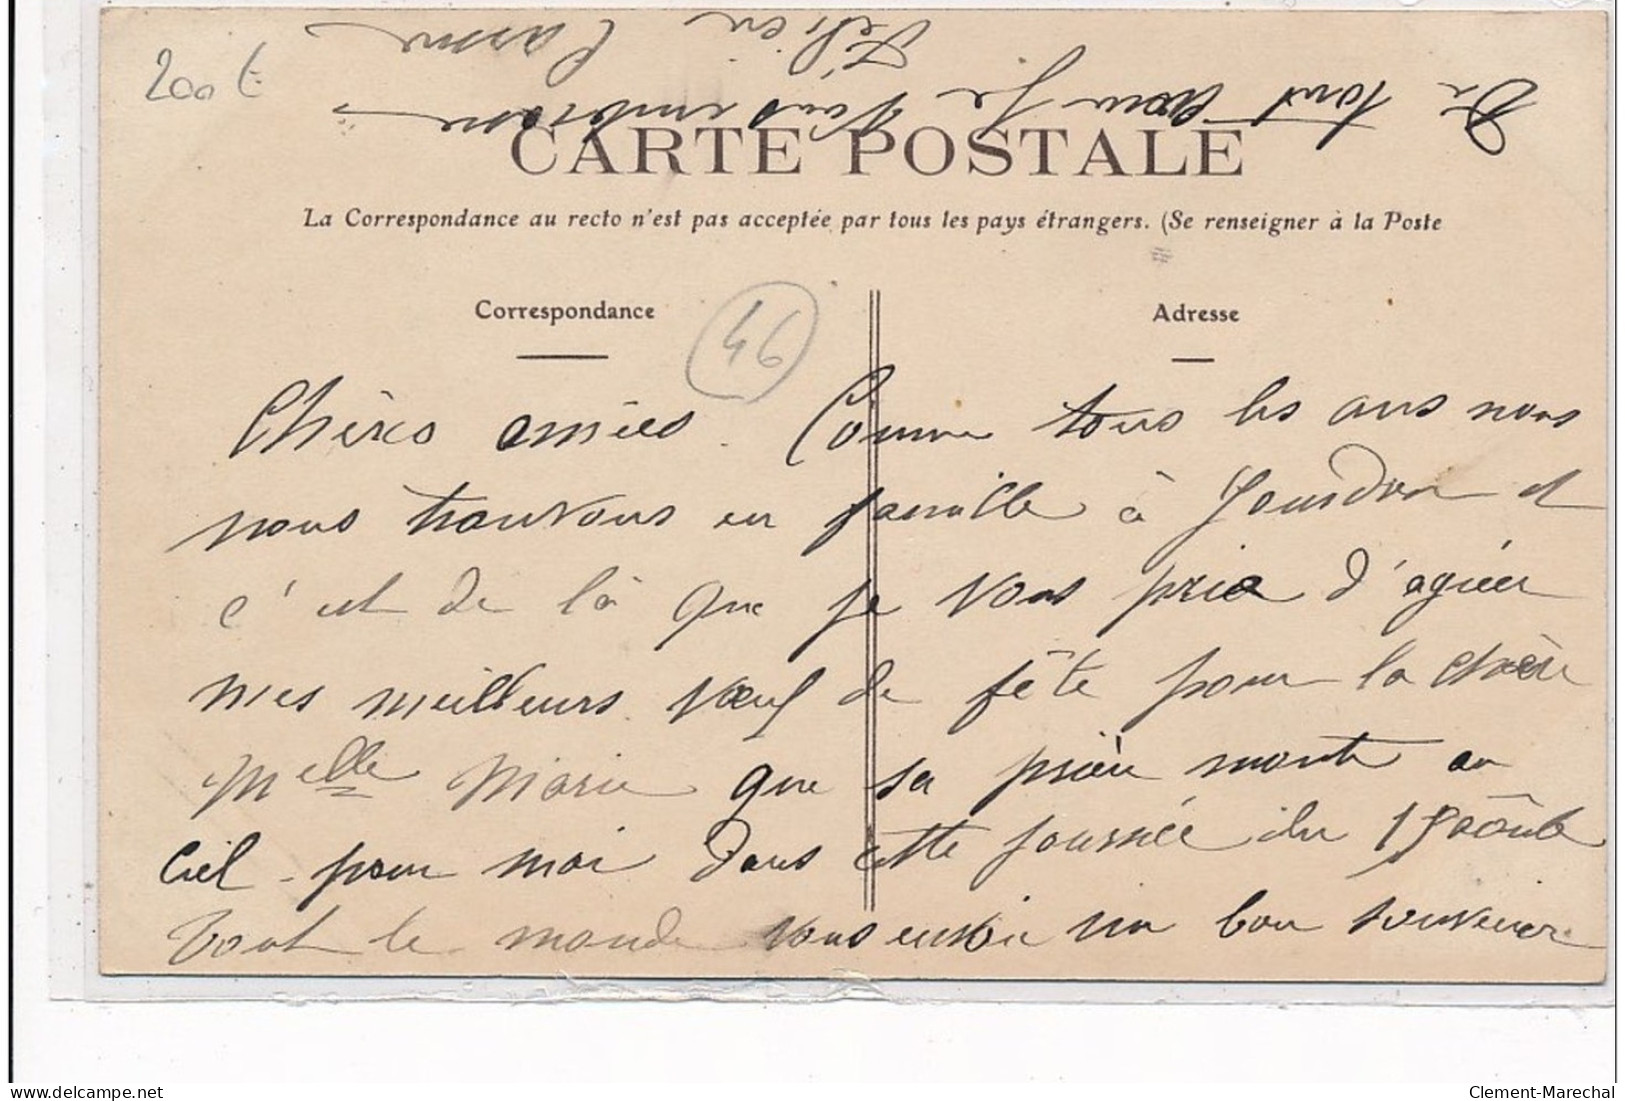 200 E
CARTE POSTALE
La Correspondance au recto n'est pas acceptée par tous les pays étrangers. (Se renseigner à la Poste
Correspondance
46
Adresse
Chères amies. Comme tous les ans nous
nous trouvons en famille à Gourdon et
c'est de là que je vous prie d'agréer
mes meilleurs vœux de fête pour la chère
Melle Marie que sa prière monte au
Ciel pour moi dans cette journée du 15 août
Tout le monde vous envoie un bon souvenir
De tout cœur Je vous embrasse
Clement-Marechal
delcampe.net